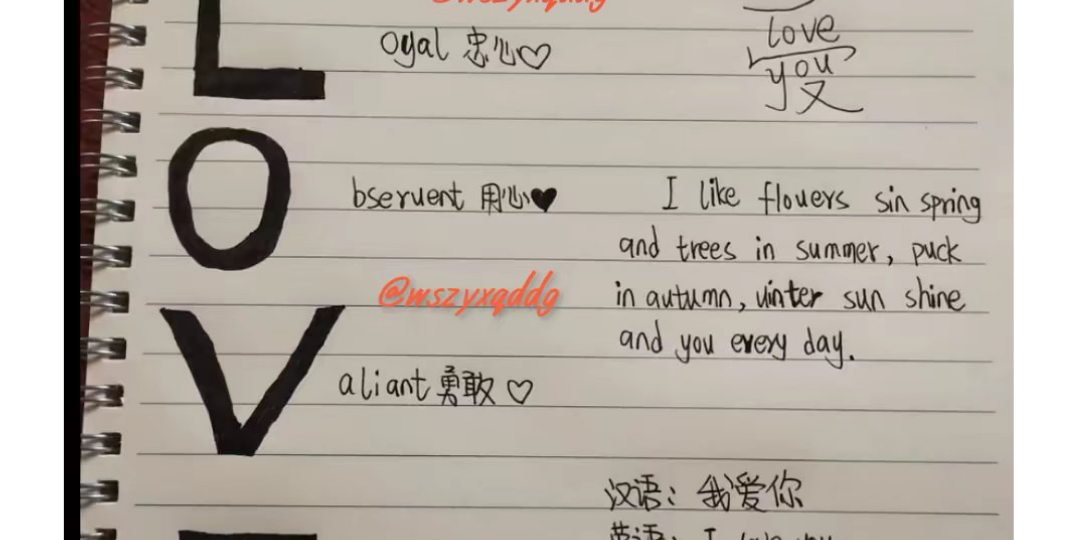 @wszyxqddg
L
oyal 忠心♡
love
you
O
bseruent 用心♥
I like flouers sin spring
and trees in summer, puck
in autumn, uinter sun shine
and you every day.
@wszyxqddg
V
aliant 勇敢♡
汉语：我爱你
英语：I love you